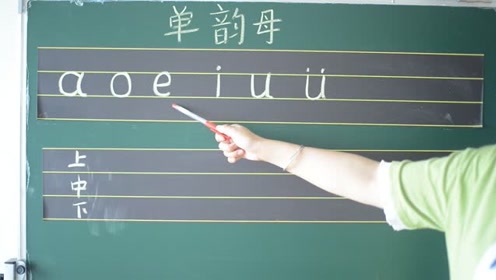 单韵母
ɑ o e i u ü
上
中
下